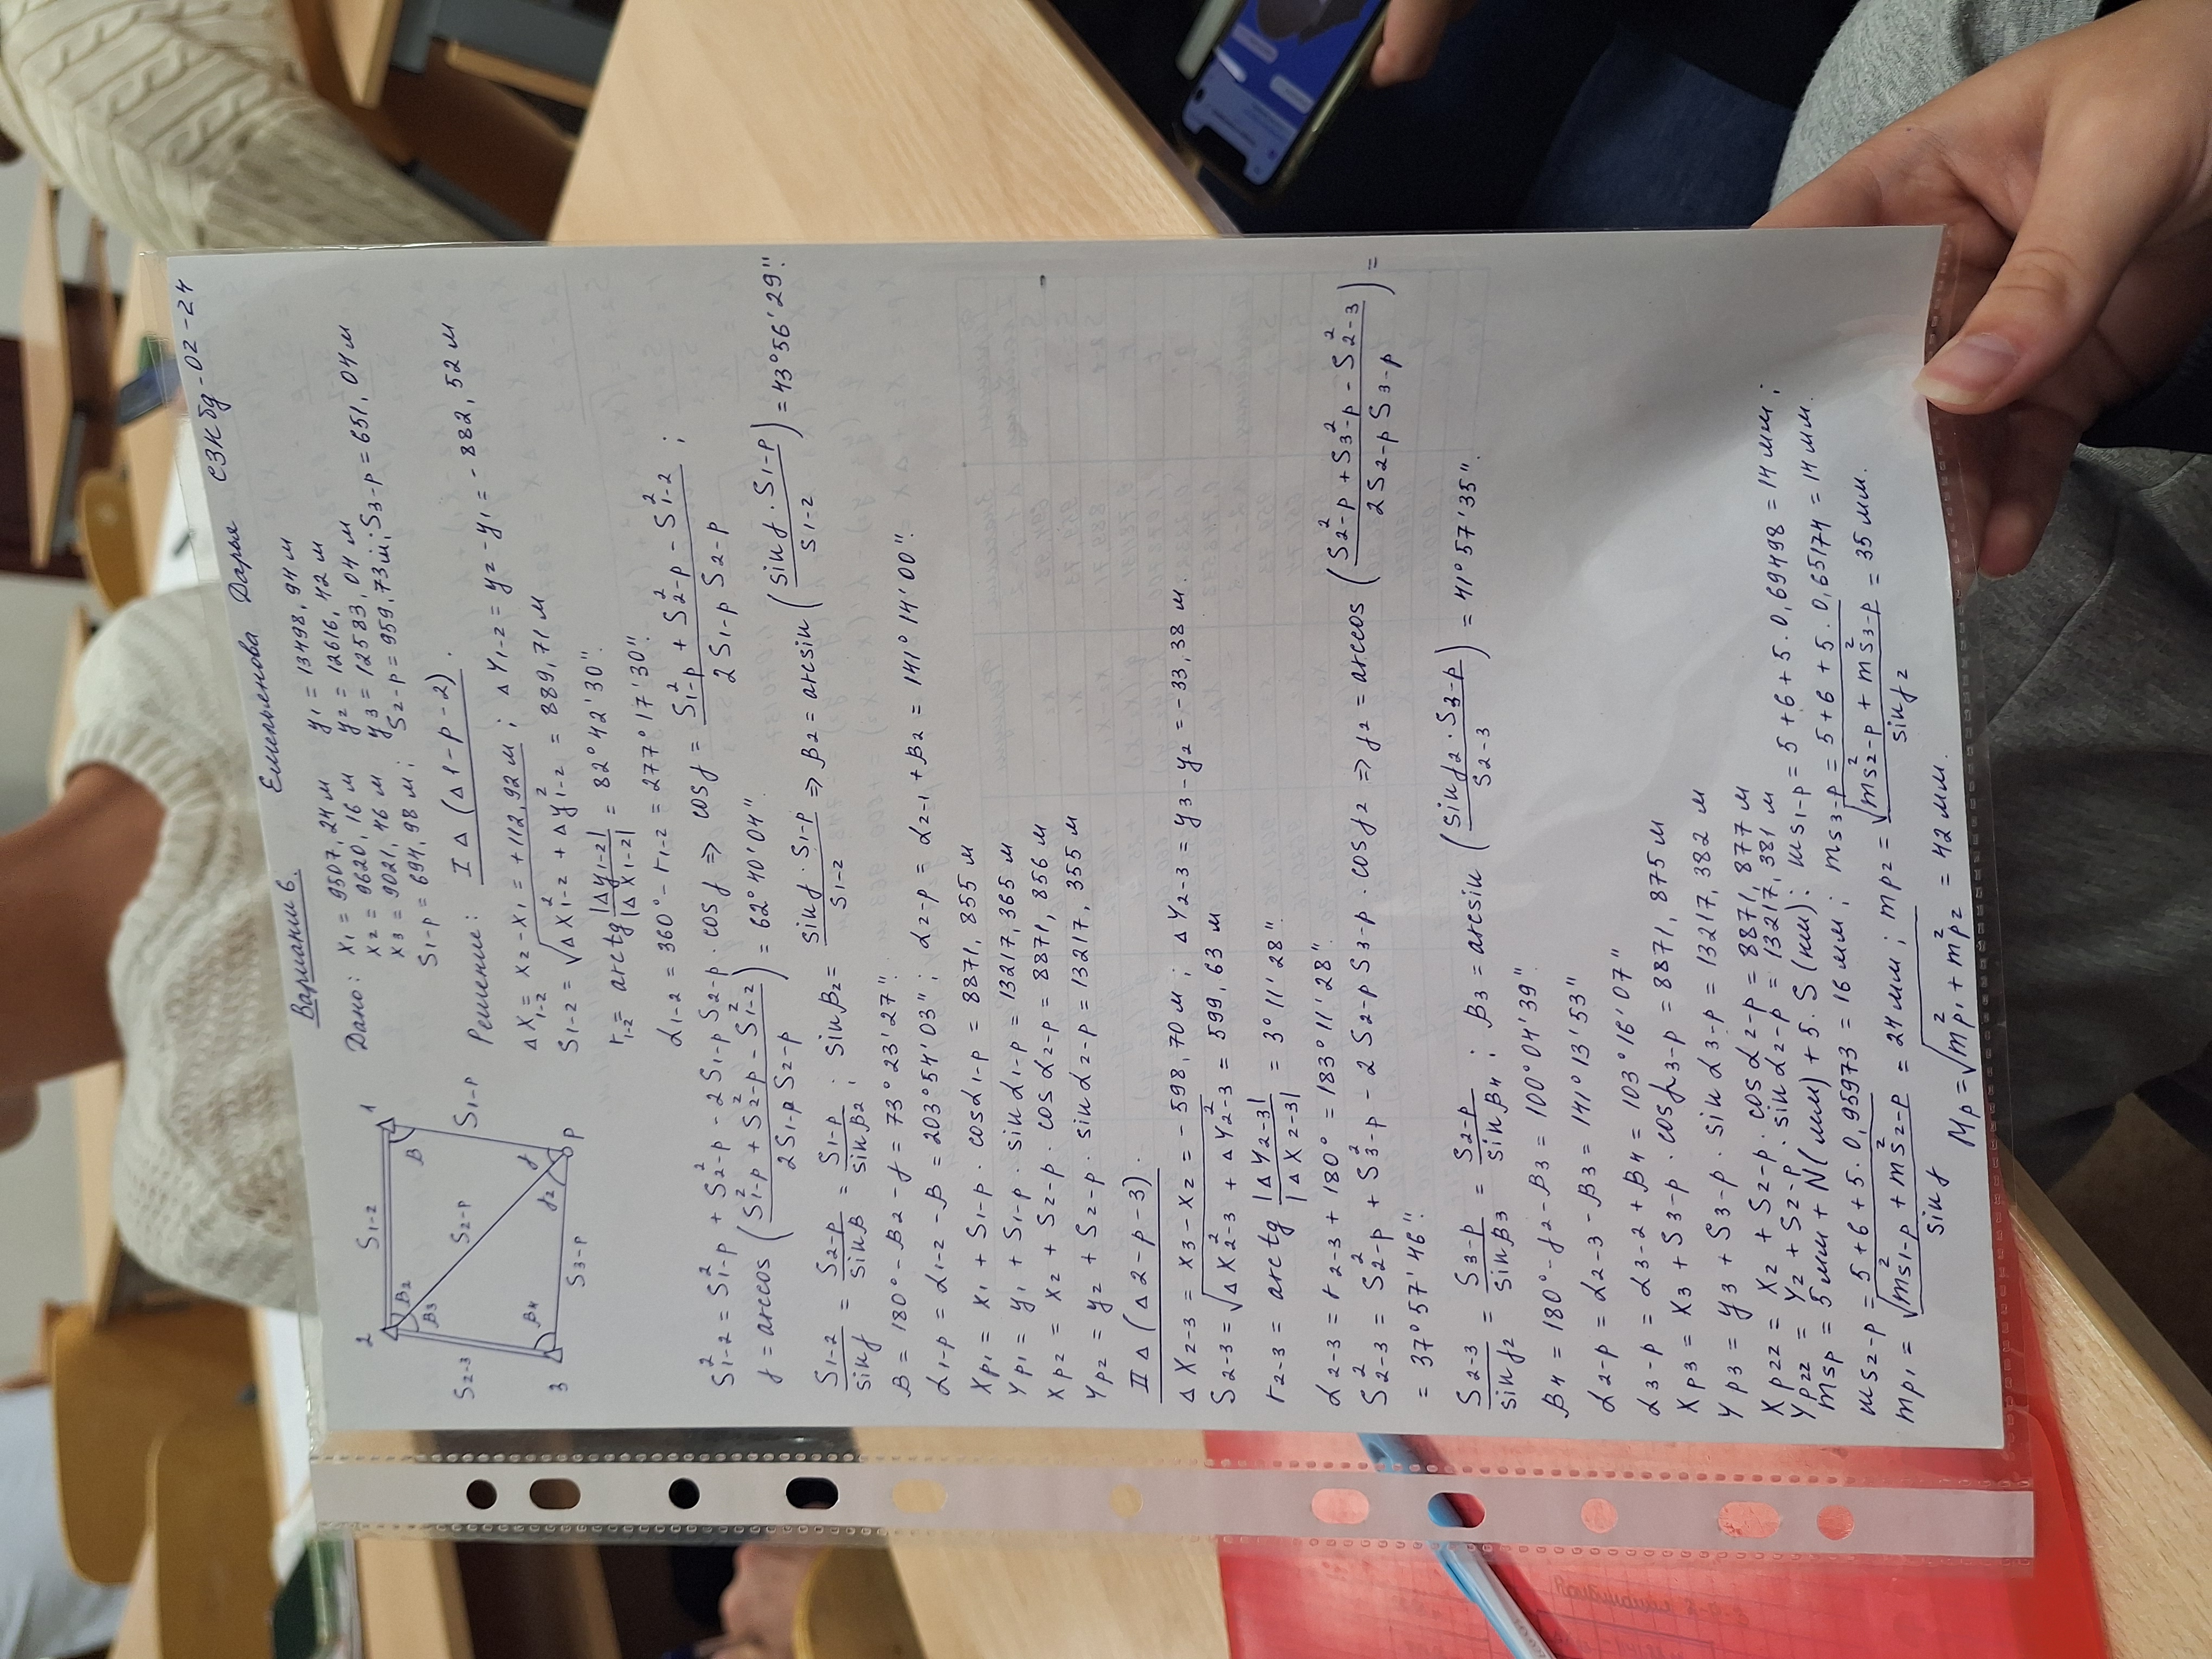 Емельянова Дарья СЗКбд-02-24
Вариант 6.
Дано: x1 = 9507,24 м y1 = 13498,94 м
x2 = 9620,16 м y2 = 12616,42 м
x3 = 9021,46 м y3 = 12583,04 м
S1-P = 694,98 м; S2-P = 959,73 м; S3-P = 651,04 м
2 S1-2 1
B2 B3 B
S2-3 S2-P S1-P
B4 γ2 γ P
3 S3-P
Решение: I Δ (Δ 1-P-2).
ΔX1-2 = X2 - X1 = +112,92 м; ΔY1-2 = y2 - y1 = -882,52 м
S1-2 = √(ΔX²1-2 + Δy²1-2) = 889,71 м
r1-2 = arctg |Δy1-2| / |ΔX1-2| = 82°42'30".
α1-2 = 360° - r1-2 = 277°17'30".
S²1-2 = S²1-P + S²2-P - 2 S1-P S2-P · cos γ ⇒ cos γ = (S²1-P + S²2-P - S²1-2) / (2 S1-P S2-P);
γ = arccos ((S²1-P + S²2-P - S²1-2) / (2 S1-P S2-P)) = 62°40'04".
S1-2 / sin γ = S2-P / sin B = S1-P / sin B2; sin B2 = (sin γ · S1-P) / S1-2 ⇒ B2 = arcsin ((sin γ · S1-P) / S1-2) = 43°56'29".
B = 180° - B2 - γ = 73°23'27".
α1-P = α1-2 - B = 203°54'03"; α2-P = α2-1 + B2 = 141°14'00".
XP1 = X1 + S1-P · cos α1-P = 8871,855 м
YP1 = y1 + S1-P · sin α1-P = 13217,365 м
XP2 = X2 + S2-P · cos α2-P = 8871,856 м
YP2 = y2 + S2-P · sin α2-P = 13217,355 м
II Δ (Δ 2-P-3).
ΔX2-3 = X3 - X2 = -598,70 м; ΔY2-3 = y3 - y2 = -33,38 м.
S2-3 = √(ΔX²2-3 + ΔY²2-3) = 599,63 м
r2-3 = arctg |ΔY2-3| / |ΔX2-3| = 3°11'28"
α2-3 = r2-3 + 180° = 183°11'28".
S²2-3 = S²2-P + S²3-P - 2 S2-P S3-P · cos γ2 ⇒ γ2 = arccos ((S²2-P + S²3-P - S²2-3) / (2 S2-P S3-P)) =
= 37°57'46".
S2-3 / sin γ2 = S3-P / sin B3 = S2-P / sin B4; B3 = arcsin ((sin γ2 · S3-P) / S2-3) = 41°57'35".
B4 = 180° - γ2 - B3 = 100°04'39".
α2-P = α2-3 - B3 = 141°13'53"
α3-P = α3-2 + B4 = 103°16'07"
XP3 = X3 + S3-P · cos α3-P = 8871,875 м
YP3 = y3 + S3-P · sin α3-P = 13217,382 м
XP22 = X2 + S2-P · cos α2-P = 8871,877 м
YP22 = Y2 + S2-P · sin α2-P = 13217,381 м
mSP = 5 мм + N (мм) + 5 · S (км): mS1-P = 5 + 6 + 5 · 0,69498 = 14 мм;
mS2-P = 5 + 6 + 5 · 0,95973 = 16 мм; mS3-P = 5 + 6 + 5 · 0,65174 = 14 мм.
mP1 = √(m²S1-P + m²S2-P) / sin γ = 24 мм; mP2 = √(m²S2-P + m²S3-P) / sin γ2 = 35 мм.
MP = √(m²P1 + m²P2) = 42 мм.